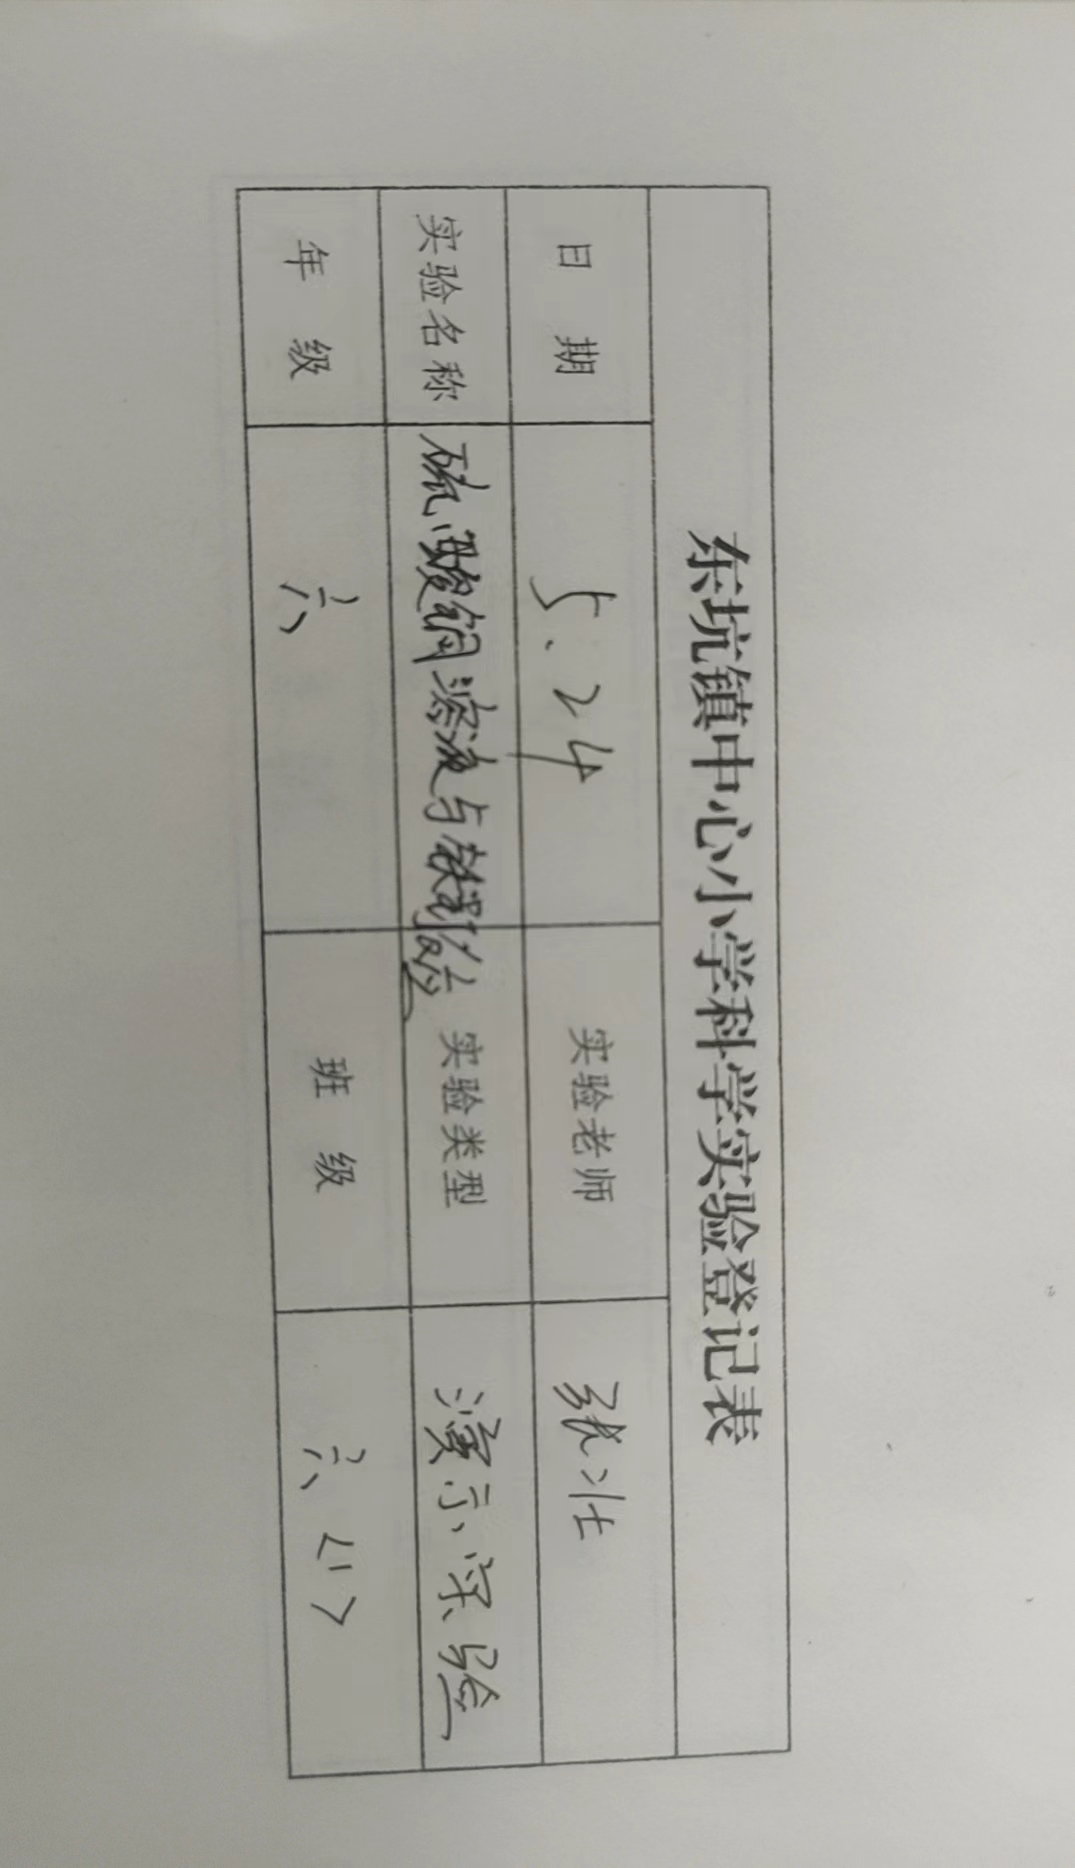 东坑镇中心小学科学实验登记表
日期 5.24 实验老师 张壮
实验名称 硫酸铜溶液与铁制 实验类型 演示实验
年级 六 班级 六<1>